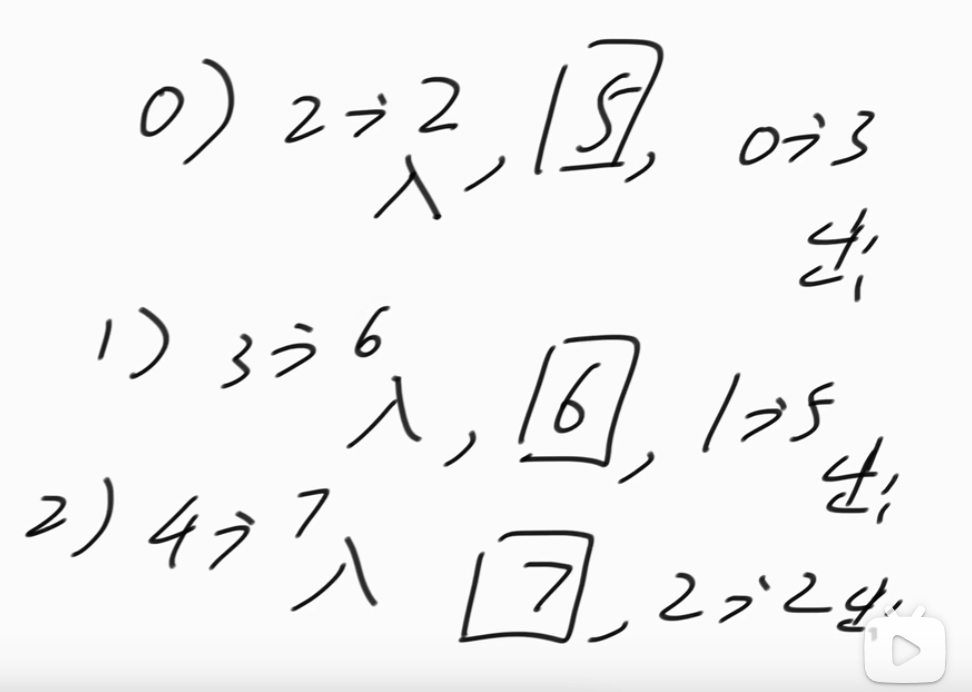 0) 2→2入, 5, 0→3出
1) 3→6入, 6, 1→5出
2) 4→7入 7, 2→2出